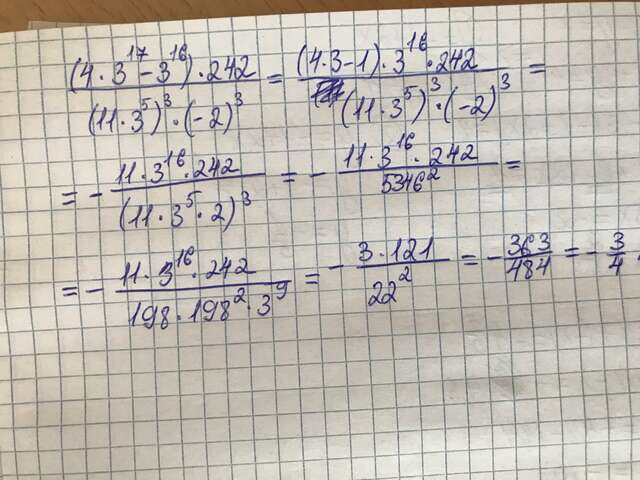 (4·3¹⁷-3¹⁶)·242 / (11·3⁵)³·(-2)³ = (4·3-1)·3¹⁶·242 / (11·3⁵)³·(-2)³ =
= - 11·3¹⁶·242 / (11·3⁵·2)³ = - 11·3¹⁶·242 / 5346² =
= - 11·3¹⁶·242 / 198·198²·3⁹ = - 3·121 / 22² = - 363/484 = - 3/4.